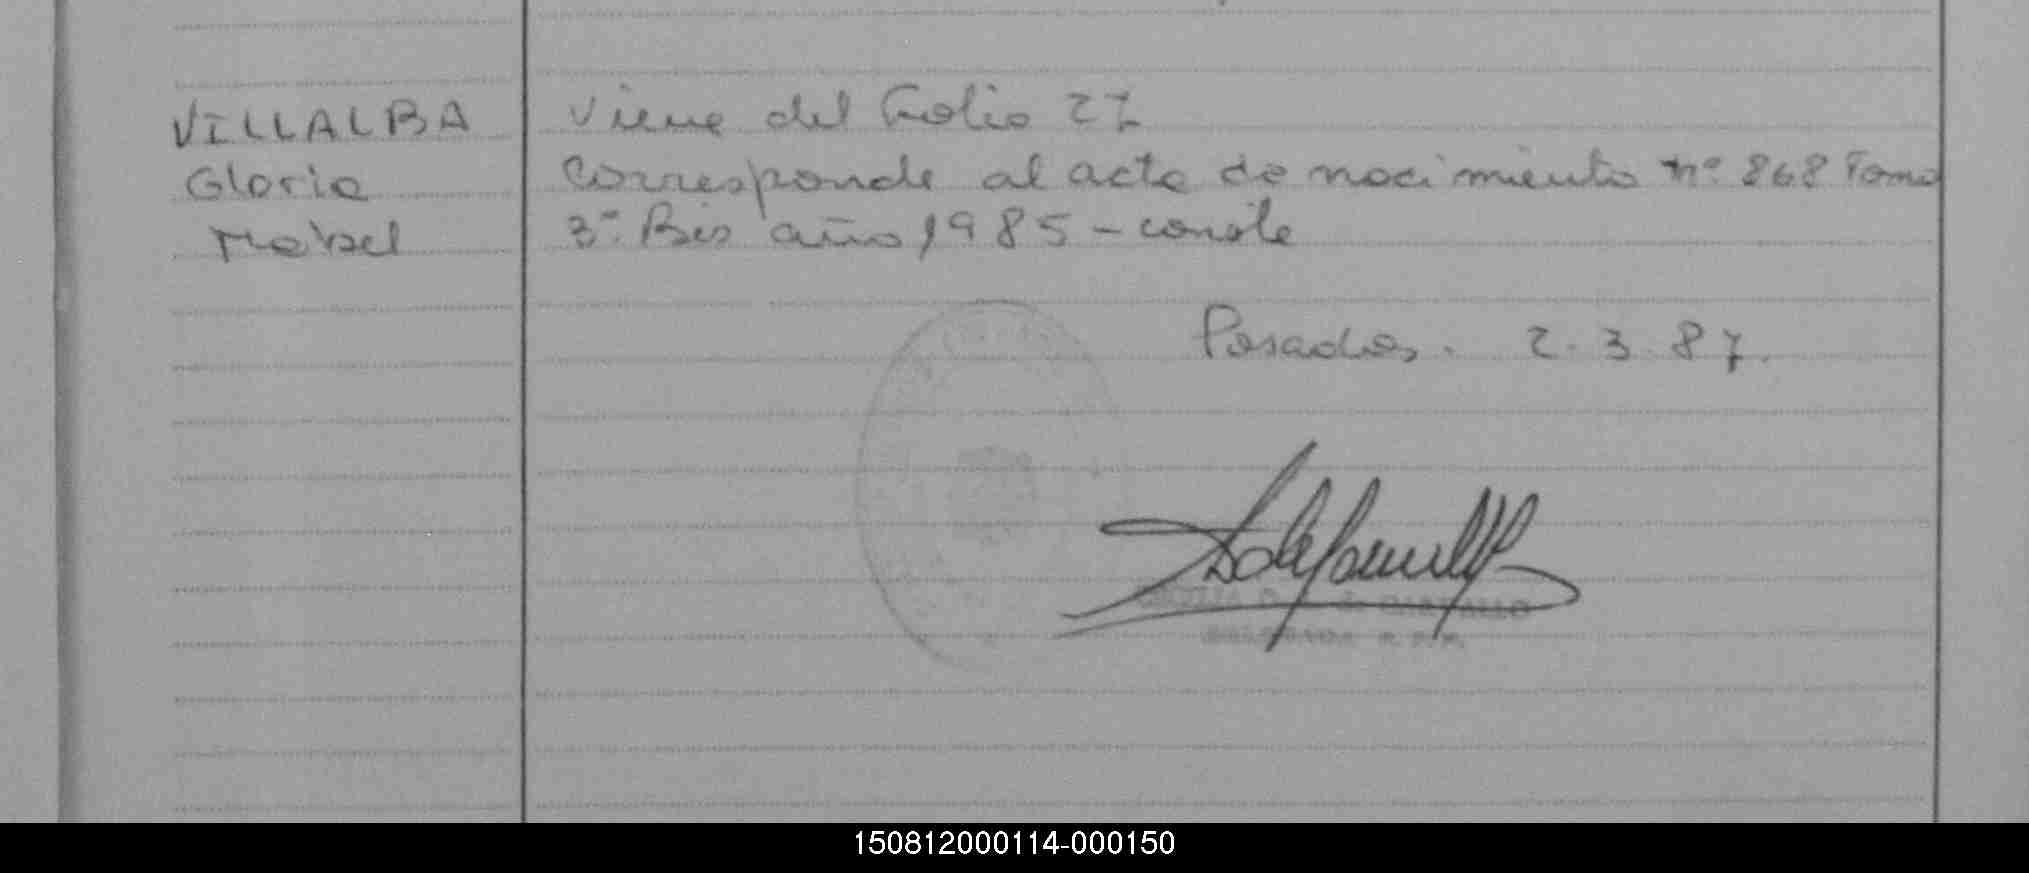 VILLALBA
Gloria
Mabel
Viene del Folio 27
Corresponde al acta de nacimiento nº 868 Tomo
3º. Bis año 1985 - conste
Posadas. 2.3.87.
150812000114-000150